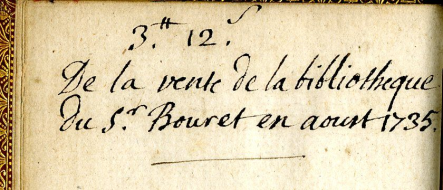 3.tt 12.s
De la vente de la bibliotheque
du S.r Bouret en aoust 1735.